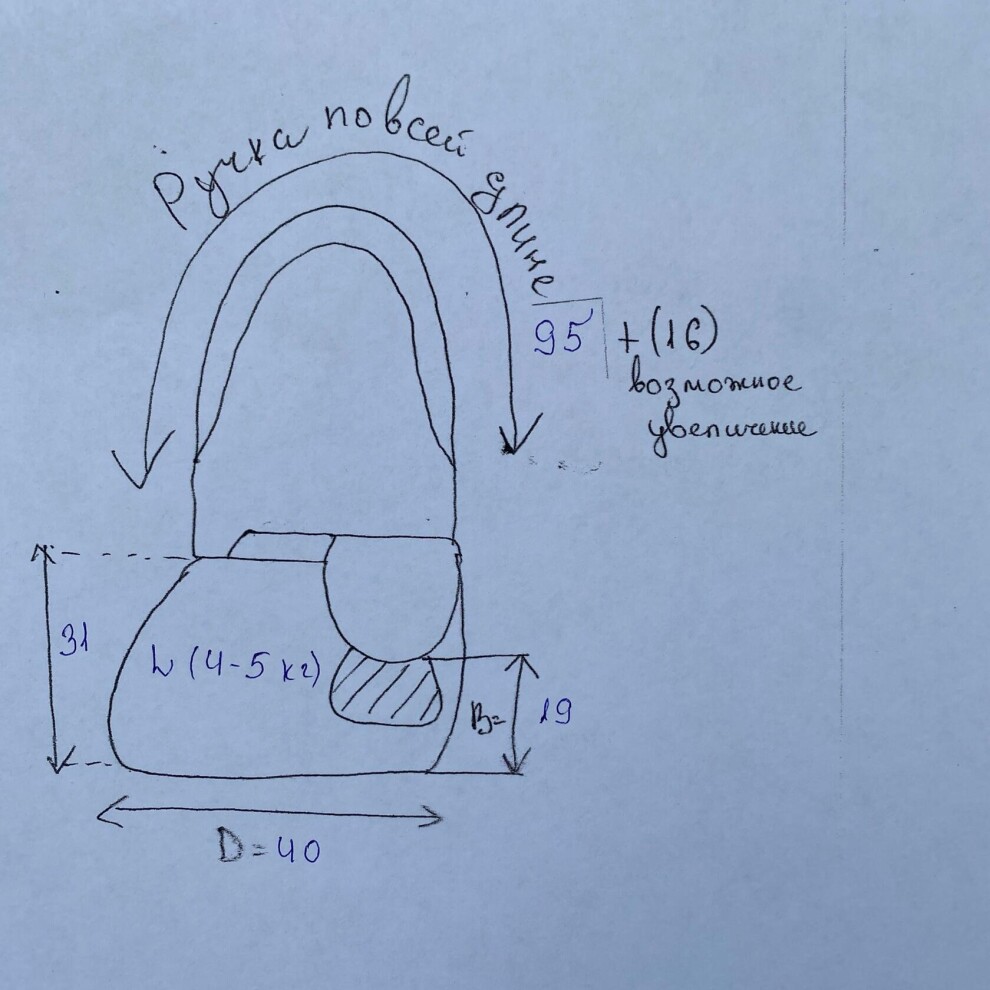 Ручка по всей длине
95 + (16)
возможное
увеличение
31
L (4-5 кг)
B= 19
D=40